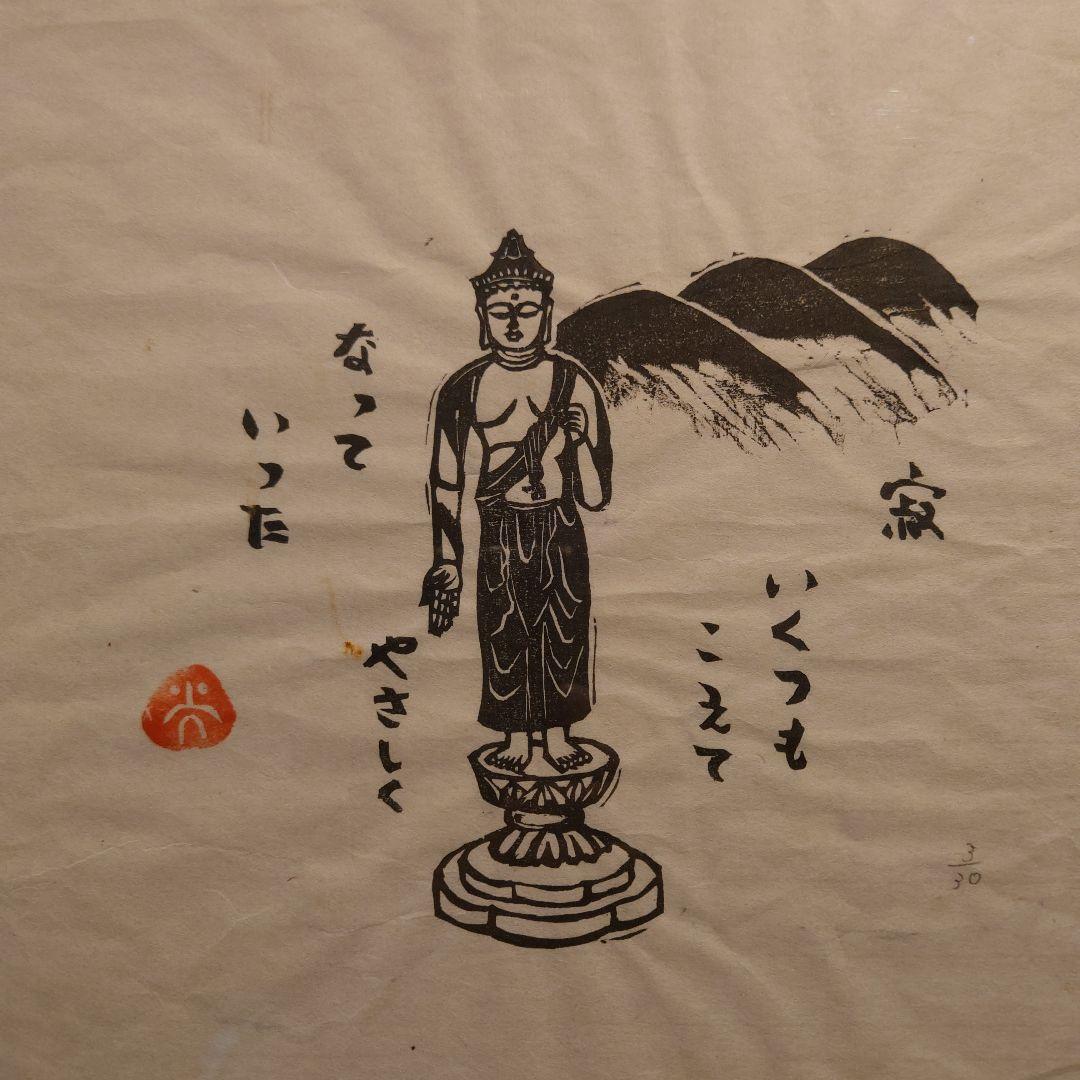 寂
いくつも
こえて
やさしく
なって
いった
3/30